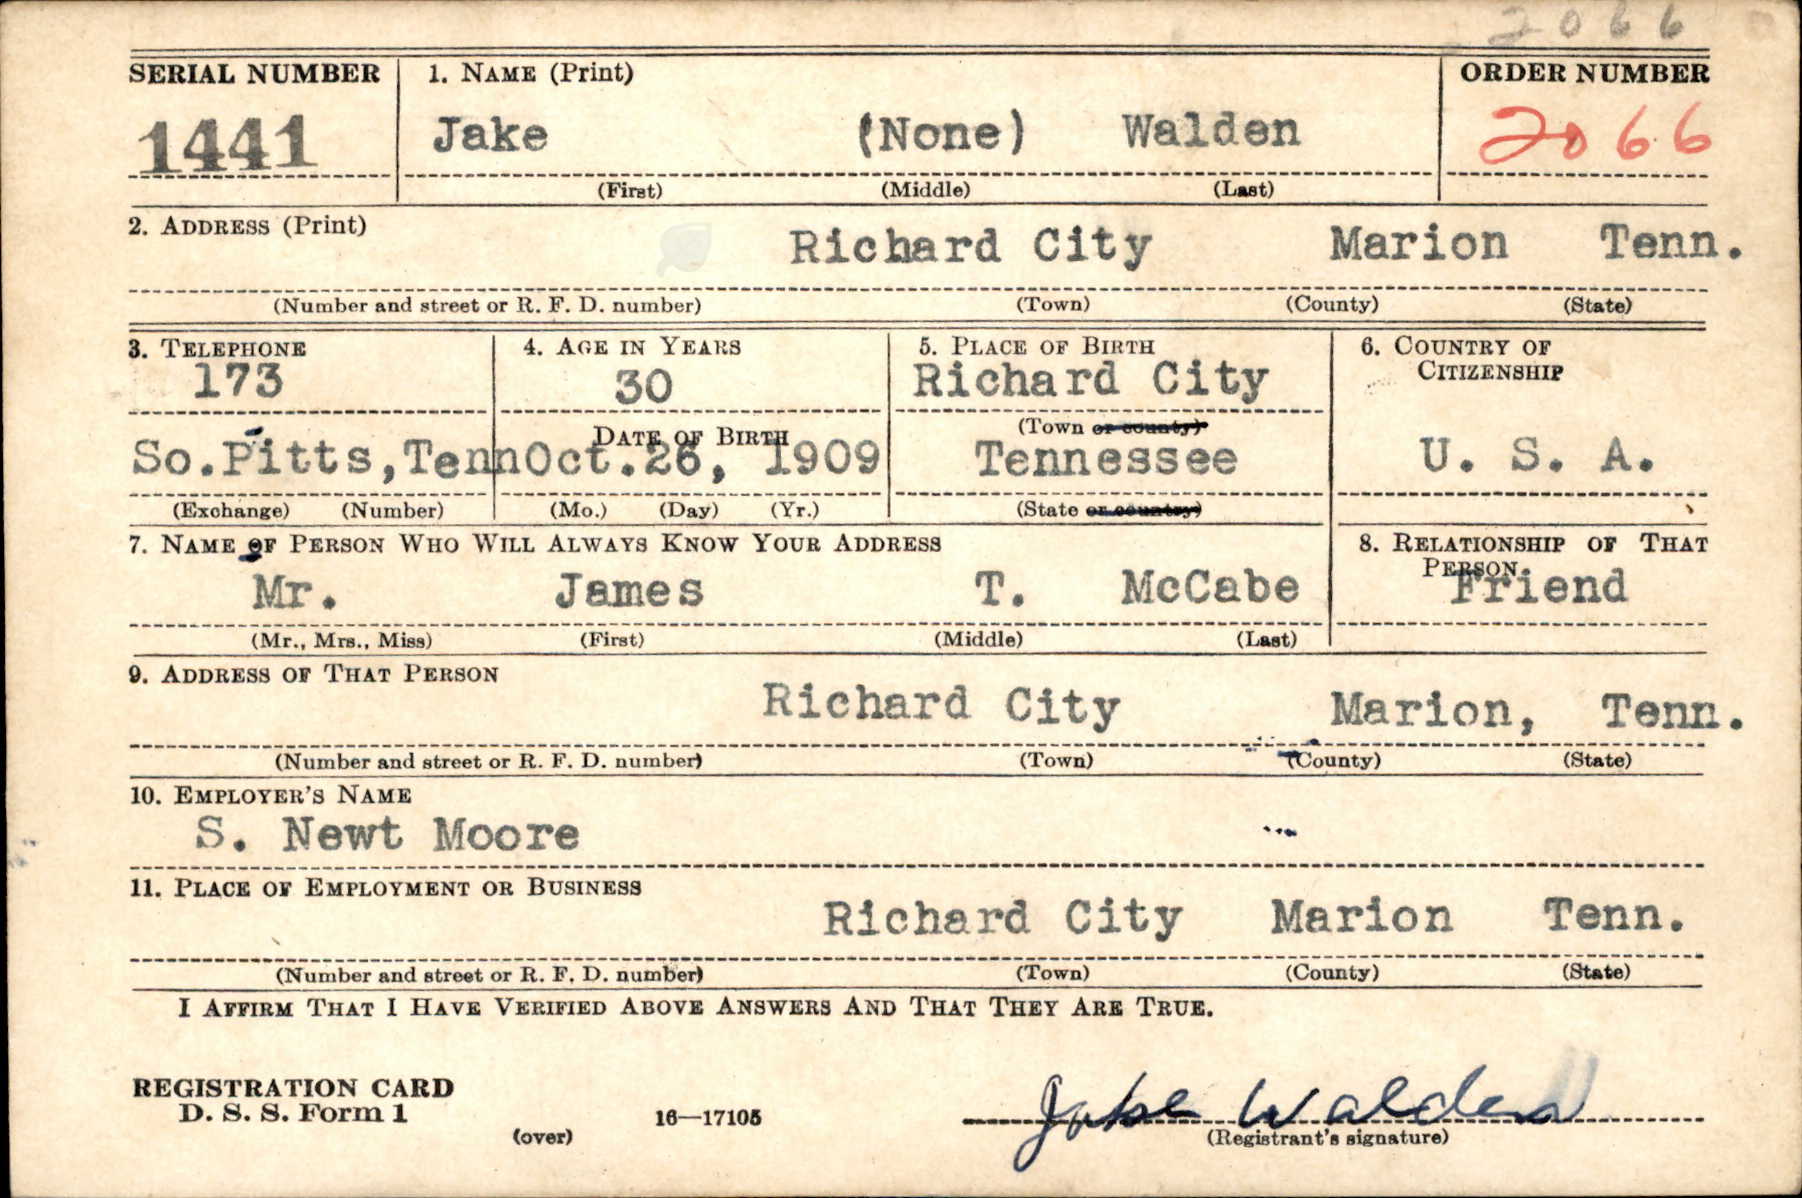 2066
SERIAL NUMBER 1. NAME (Print) ORDER NUMBER
1441 Jake (None) Walden 2066
(First) (Middle) (Last)
2. ADDRESS (Print)
Richard City Marion Tenn.
(Number and street or R. F. D. number) (Town) (County) (State)
3. TELEPHONE 4. AGE IN YEARS 5. PLACE OF BIRTH 6. COUNTRY OF
CITIZENSHIP
173 30 Richard City
DATE OF BIRTH (Town or county)
So.Pitts,Tenn Oct.26, 1909 Tennessee U. S. A.
(Exchange) (Number) (Mo.) (Day) (Yr.) (State or country)
7. NAME OF PERSON WHO WILL ALWAYS KNOW YOUR ADDRESS 8. RELATIONSHIP OF THAT
PERSON
Mr. James T. McCabe Friend
(Mr., Mrs., Miss) (First) (Middle) (Last)
9. ADDRESS OF THAT PERSON
Richard City Marion, Tenn.
(Number and street or R. F. D. number) (Town) (County) (State)
10. EMPLOYER'S NAME
S. Newt Moore
11. PLACE OF EMPLOYMENT OR BUSINESS
Richard City Marion Tenn.
(Number and street or R. F. D. number) (Town) (County) (State)
I AFFIRM THAT I HAVE VERIFIED ABOVE ANSWERS AND THAT THEY ARE TRUE.
REGISTRATION CARD
D. S. S. Form 1 16—17105 Jake Walden
(over) (Registrant's signature)